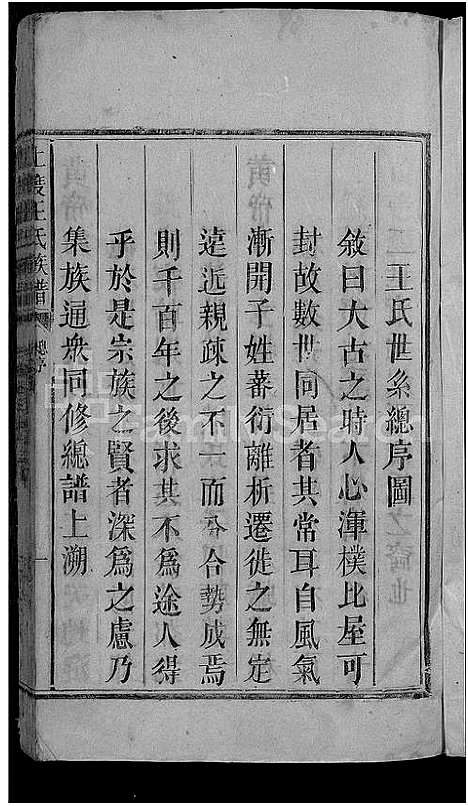 王氏世系總序圖
敘曰大古之時人心渾樸比屋可
封故數世同居者其常耳自風氣
漸開子姓蕃衍離析遷徙之無定
遠近親疎之不一而分合勢成焉
則千百年之後求其不為途人得
乎於是宗族之賢者深為之慮乃
集族通衆同修總譜上溯
王氏族譜
總序
一
FamilySearch